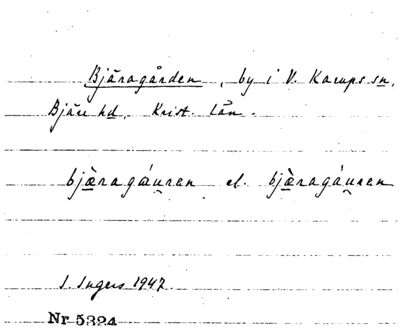 Bjäragården, by i V. Karups sn,
Bjäre hd, Krist. län.
bjæ̀ragǽu̯ren el. bjæ̀ragáu̯ren
I. Ingers 1947.
Nr 5324